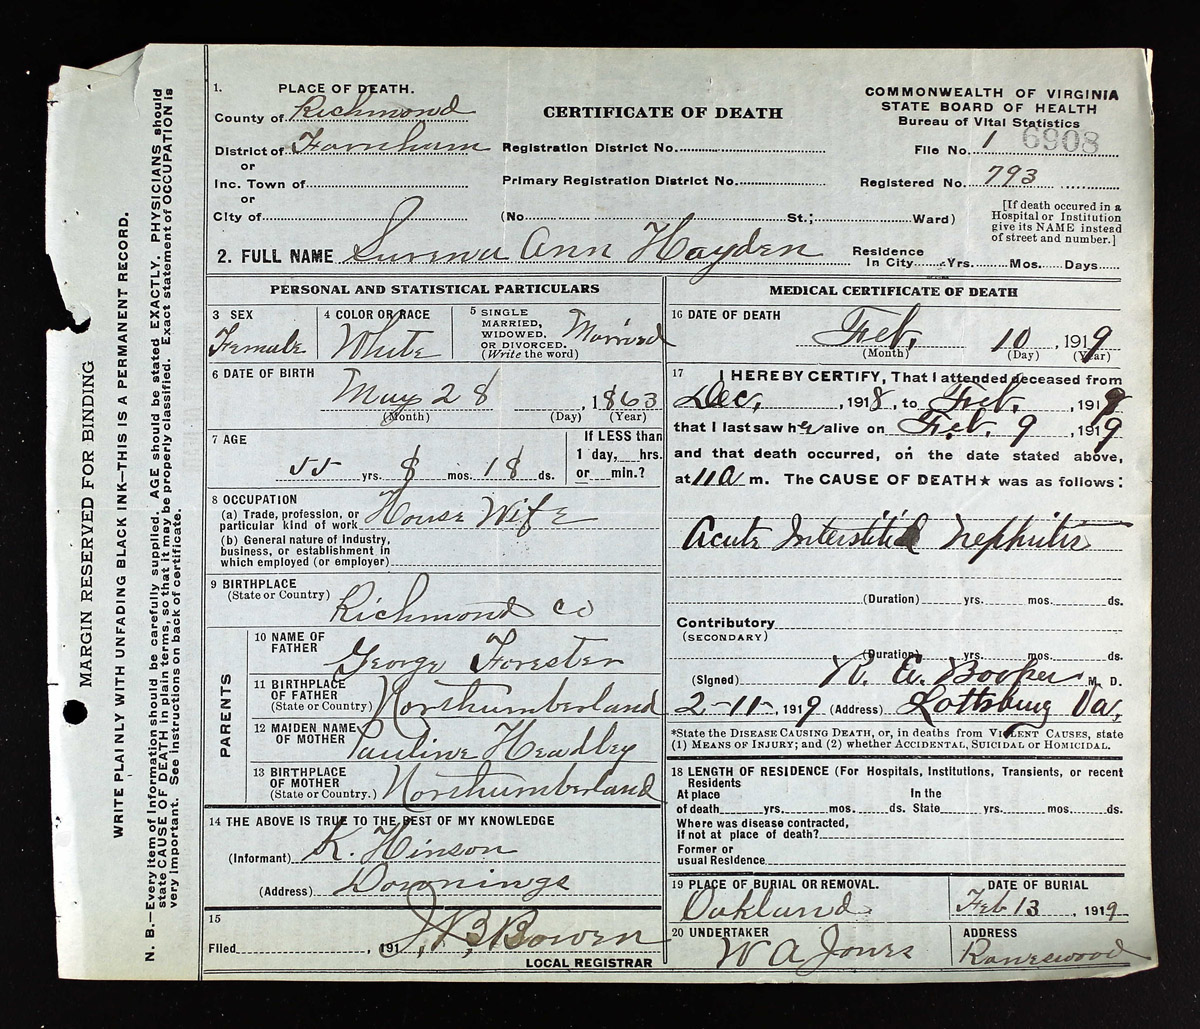 1. PLACE OF DEATH.
County of Richmond
District of Farnham
or
Inc. Town of
or
City of
CERTIFICATE OF DEATH
Registration District No.
Primary Registration District No.
(No. St.; Ward)
COMMONWEALTH OF VIRGINIA
STATE BOARD OF HEALTH
Bureau of Vital Statistics
File No. 1 6908
Registered No. 793
[If death occured in a
Hospital or Institution
give its NAME instead
of street and number.]
2. FULL NAME Ann Hayden
Residence
In City Yrs. Mos. Days
PERSONAL AND STATISTICAL PARTICULARS
3 SEX
Female
4 COLOR OR RACE
White
5 SINGLE
MARRIED,
WIDOWED.
OR DIVORCED.
(Write the word)
Married
6 DATE OF BIRTH
May 28, 1863
(Month) (Day) (Year)
7 AGE
55 yrs. 8 mos. 18 ds.
If LESS than
1 day, hrs.
or min.?
8 OCCUPATION
(a) Trade, profession, or
particular kind of work House Wife
(b) General nature of Industry,
business, or establishment in
which employed (or employer)
9 BIRTHPLACE
(State or Country)
Richmond Co
PARENTS
10 NAME OF
FATHER
George Forester
11 BIRTHPLACE
OF FATHER
(State or Country)
Northumberland
12 MAIDEN NAME
OF MOTHER
Pauline Headley
13 BIRTHPLACE
OF MOTHER
(State or Country.)
Northumberland
14 THE ABOVE IS TRUE TO THE BEST OF MY KNOWLEDGE
(Informant) K. Hinson
(Address) Downings
15
Filed , 191 J. B. Bowen
LOCAL REGISTRAR
MEDICAL CERTIFICATE OF DEATH
16 DATE OF DEATH
Feb. 10, 1919
(Month) (Day) (Year)
17 I HEREBY CERTIFY, That I attended deceased from
Dec., 1918, to Feb., 1919
that I last saw her alive on Feb. 9, 1919
and that death occurred, on the date stated above,
at 11a m. The CAUSE OF DEATH★ was as follows:
Acute Interstitial Nephritis
(Duration) yrs. mos. ds.
Contributory
(SECONDARY)
(Duration) yrs. mos. ds.
(Signed) R. E. Booker M. D.
2-11-, 1919 (Address) Lottsburg Va.
*State the DISEASE CAUSING DEATH, or, in deaths from VIOLENT CAUSES, state
(1) MEANS OF INJURY; and (2) whether ACCIDENTAL, SUICIDAL or HOMICIDAL.
18 LENGTH OF RESIDENCE (For Hospitals, Institutions, Transients, or recent
Residents
At place In the
of death yrs. mos. ds. State yrs. mos. ds.
Where was disease contracted,
If not at place of death?
Former or
usual Residence
19 PLACE OF BURIAL OR REMOVAL.
Oakland
DATE OF BURIAL
Feb 13, 1919
20 UNDERTAKER
W A Jones
ADDRESS
MARGIN RESERVED FOR BINDING
WRITE PLAINLY WITH UNFADING BLACK INK—THIS IS A PERMANENT RECORD.
N. B.—Every item of information should be carefully supplied. AGE should be stated EXACTLY. PHYSICIANS should
state CAUSE OF DEATH in plain terms, so that it may be properly classified. Exact statement of OCCUPATION is
very important. See instructions on back of certificate.